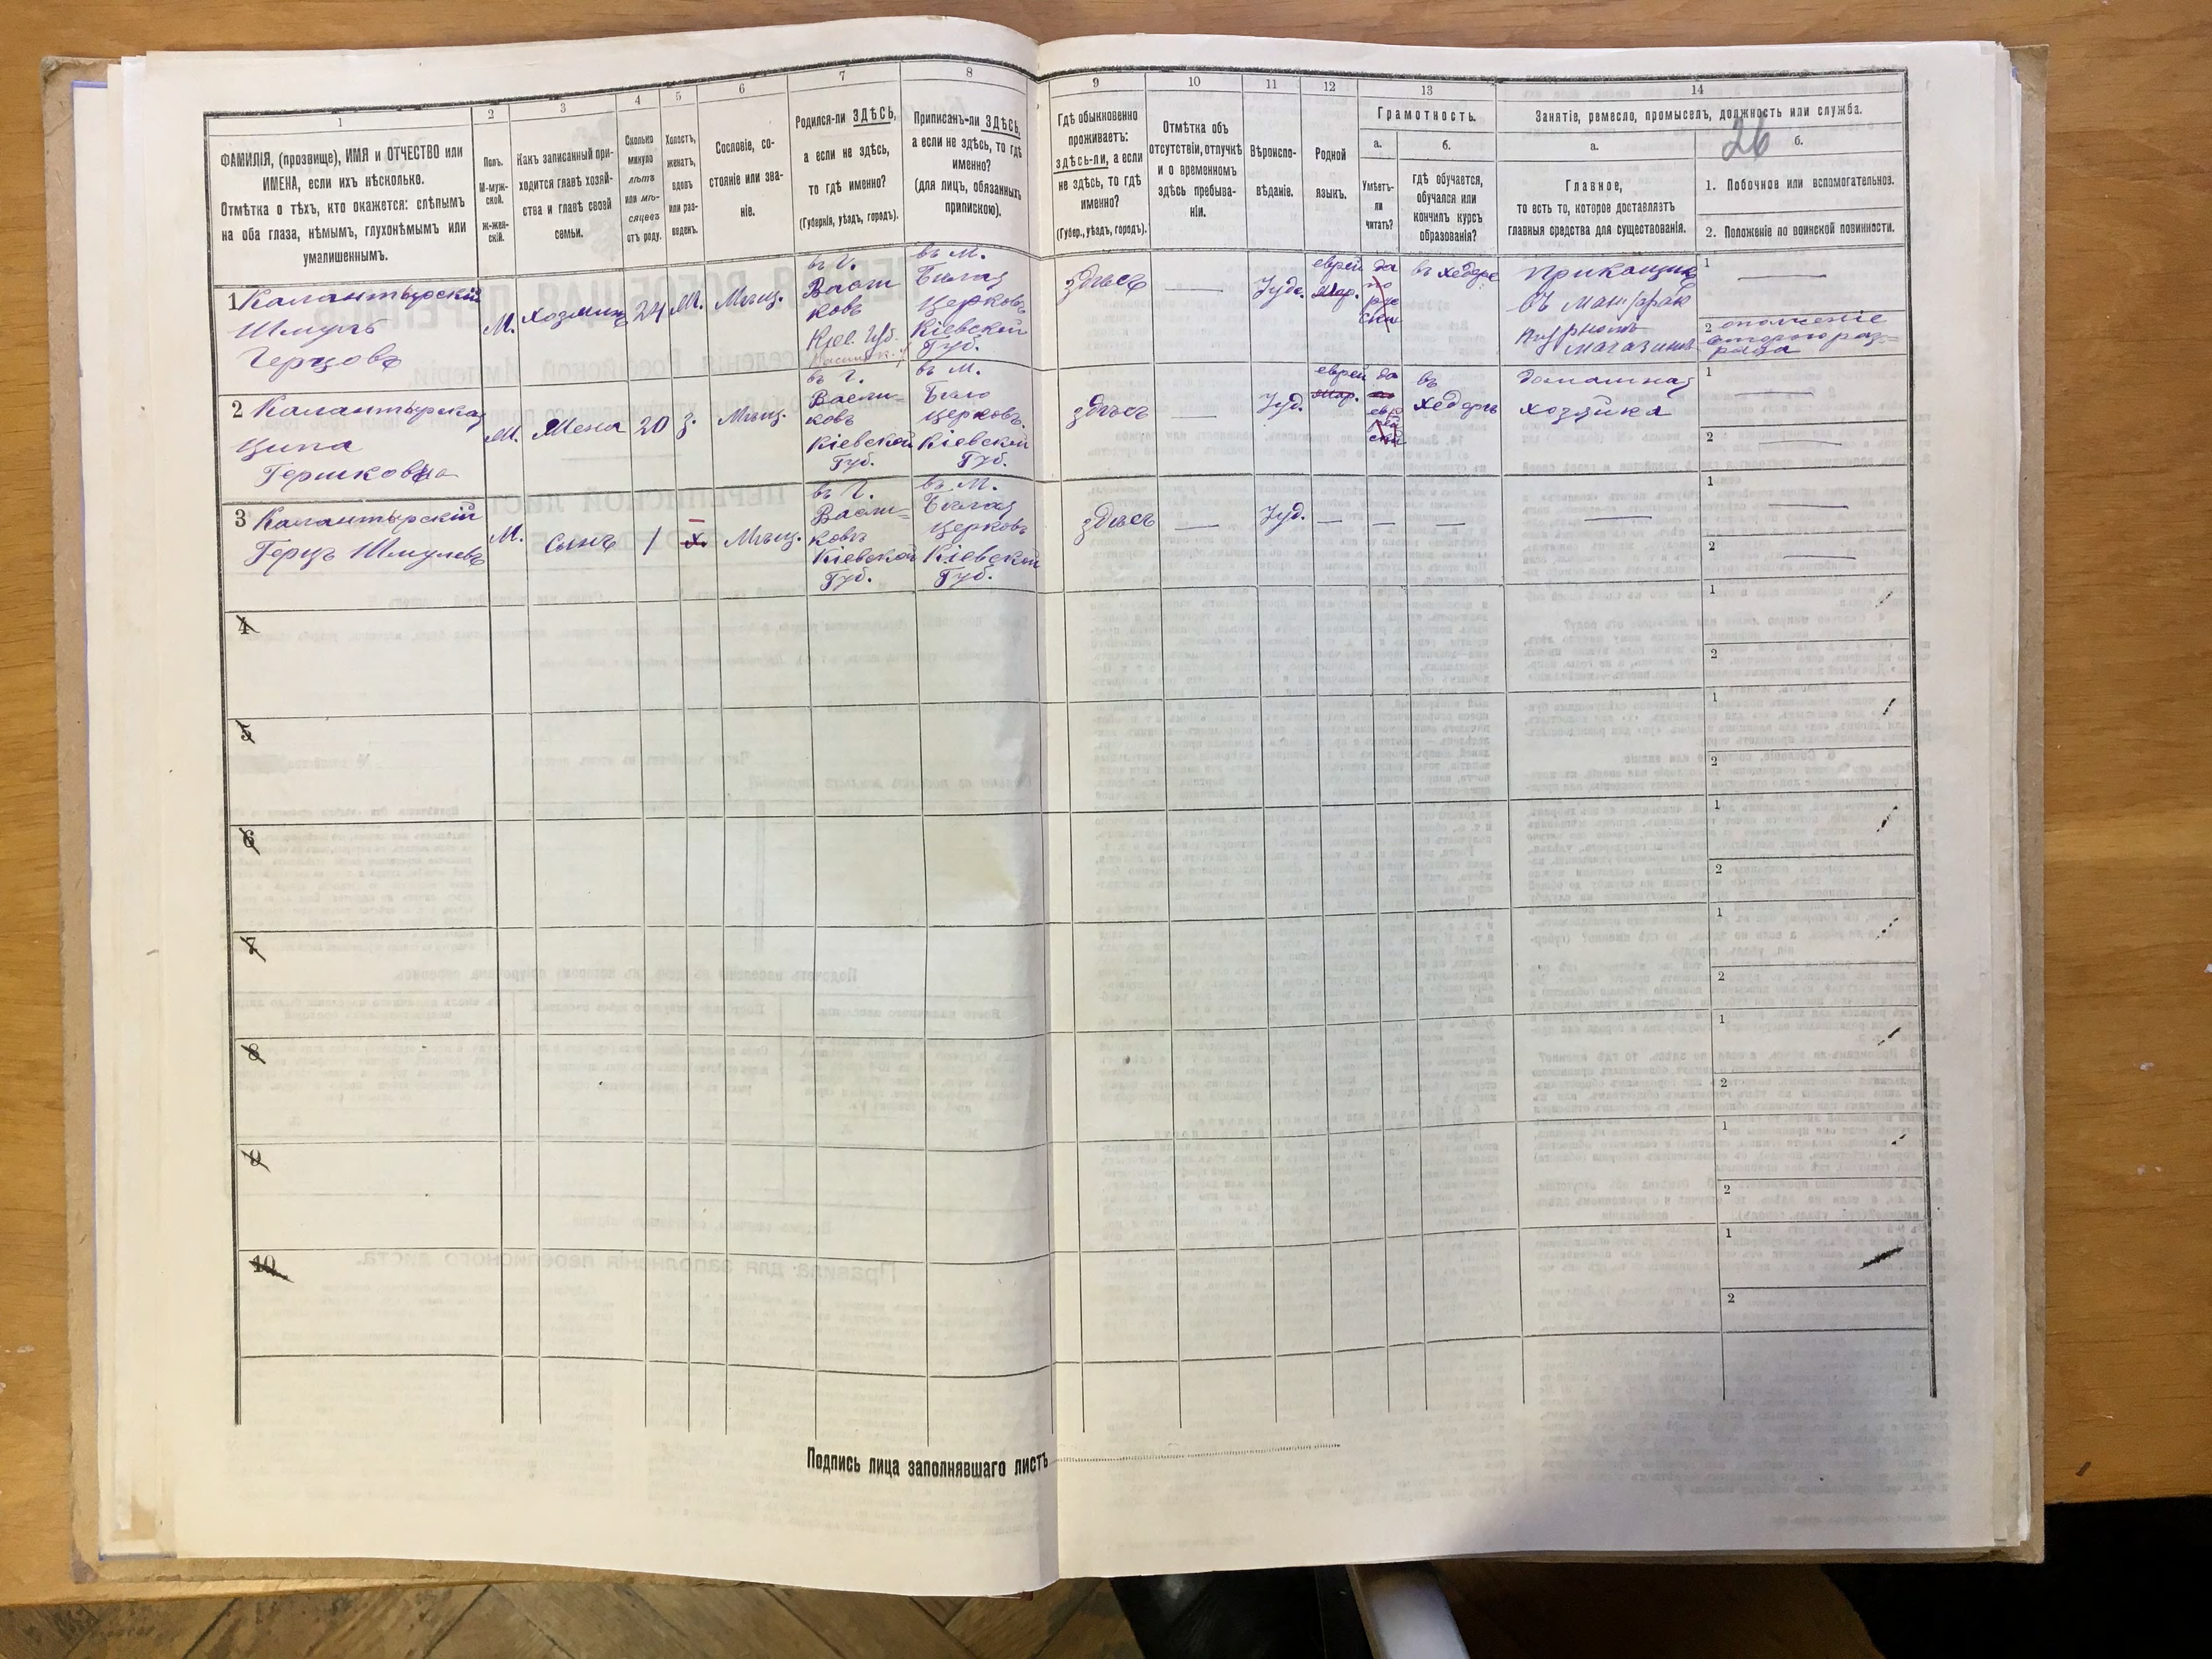 1
2
3
4
5
6
7
8
9
10
11
12
13
14
ФАМИЛІЯ, (прозвище), ИМЯ и ОТЧЕСТВО или
ИМЕНА, если ихъ нѣсколько.
Отмѣтка о тѣхъ, кто окажется: слѣпымъ
на оба глаза, нѣмымъ, глухонѣмымъ или
умалишеннымъ.
Полъ.
М-муж-
ской.
Ж-жен-
скій.
Какъ записанный при-
ходится главѣ хозяй-
ства и главѣ своей
семьи.
Сколько
минуло
лѣтъ
или мѣ-
сяцевъ
отъ роду.
Холостъ,
женатъ,
вдовъ
или раз-
веденъ.
Сословіе, со-
стояніе или зва-
ніе.
Родился-ли ЗДѢСЬ,
а если не здѣсь,
то гдѣ именно?
(Губернія, уѣздъ, городъ).
Приписанъ-ли ЗДѢСЬ,
а если не здѣсь, то гдѣ
именно?
(для лицъ, обязанныхъ
припискою).
Гдѣ обыкновенно
проживаетъ:
здѣсь-ли, а если
не здѣсь, то гдѣ
именно?
(Губер., уѣздъ, городъ).
Отмѣтка объ
отсутствіи, отлучкѣ
и о временномъ
здѣсь пребыва-
ніи.
Вѣроиспо-
вѣданіе.
Родной
языкъ.
Грамотность.
а.
Умѣетъ-
ли
читать?
б.
гдѣ обучается,
обучался или
кончилъ курсъ
образованія?
Занятіе, ремесло, промыселъ, должность или служба.
26
а.
Главное,
то есть то, которое доставляетъ
главныя средства для существованія.
б.
1. Побочное или вспомогательное.
2. Положеніе по воинской повинности.
1 Калантырскій
Шмуль
Герцовъ
М.
хозяинъ
24
Мѣщ.
въ Г.
Васи
ковъ
Кіев. Губ.
въ М.
Бѣлая
Церковь
Кіевской
Губ.
здѣсь
—
Іуде.
еврей
да
по
рус
ски
въ хедерѣ
Приказчик
въ мануфак
турномъ
магазинѣ
1 —
2 ополченіе
второго раз-
ряда
2 Калантырская
Ципа
Гершковна
М.
Жена
20
З.
Мѣщ.
въ Г.
Васи-
ковъ
Кіевской
Губ.
въ М.
Бѣло
церковь
Кіевской
Губ.
здѣсь
—
Іуд.
еврей
да
въ
хедерѣ
домашная
хозяйка
1 —
2 —
3 Калантырскій
Герцъ Шмулевъ
М.
Сынъ
1
х.
Мѣщ.
въ Г.
Васи-
ковъ
Кіевской
Губ.
въ М.
Бѣлая
Церковь
Кіевской
Губ.
здѣсь
—
Іуд.
—
—
—
—
1 —
2 —
4
1
2
5
1
2
6
1
2
7
1
2
8
1
2
9
1
2
10
1
2
Подпись лица заполнявшаго листъ